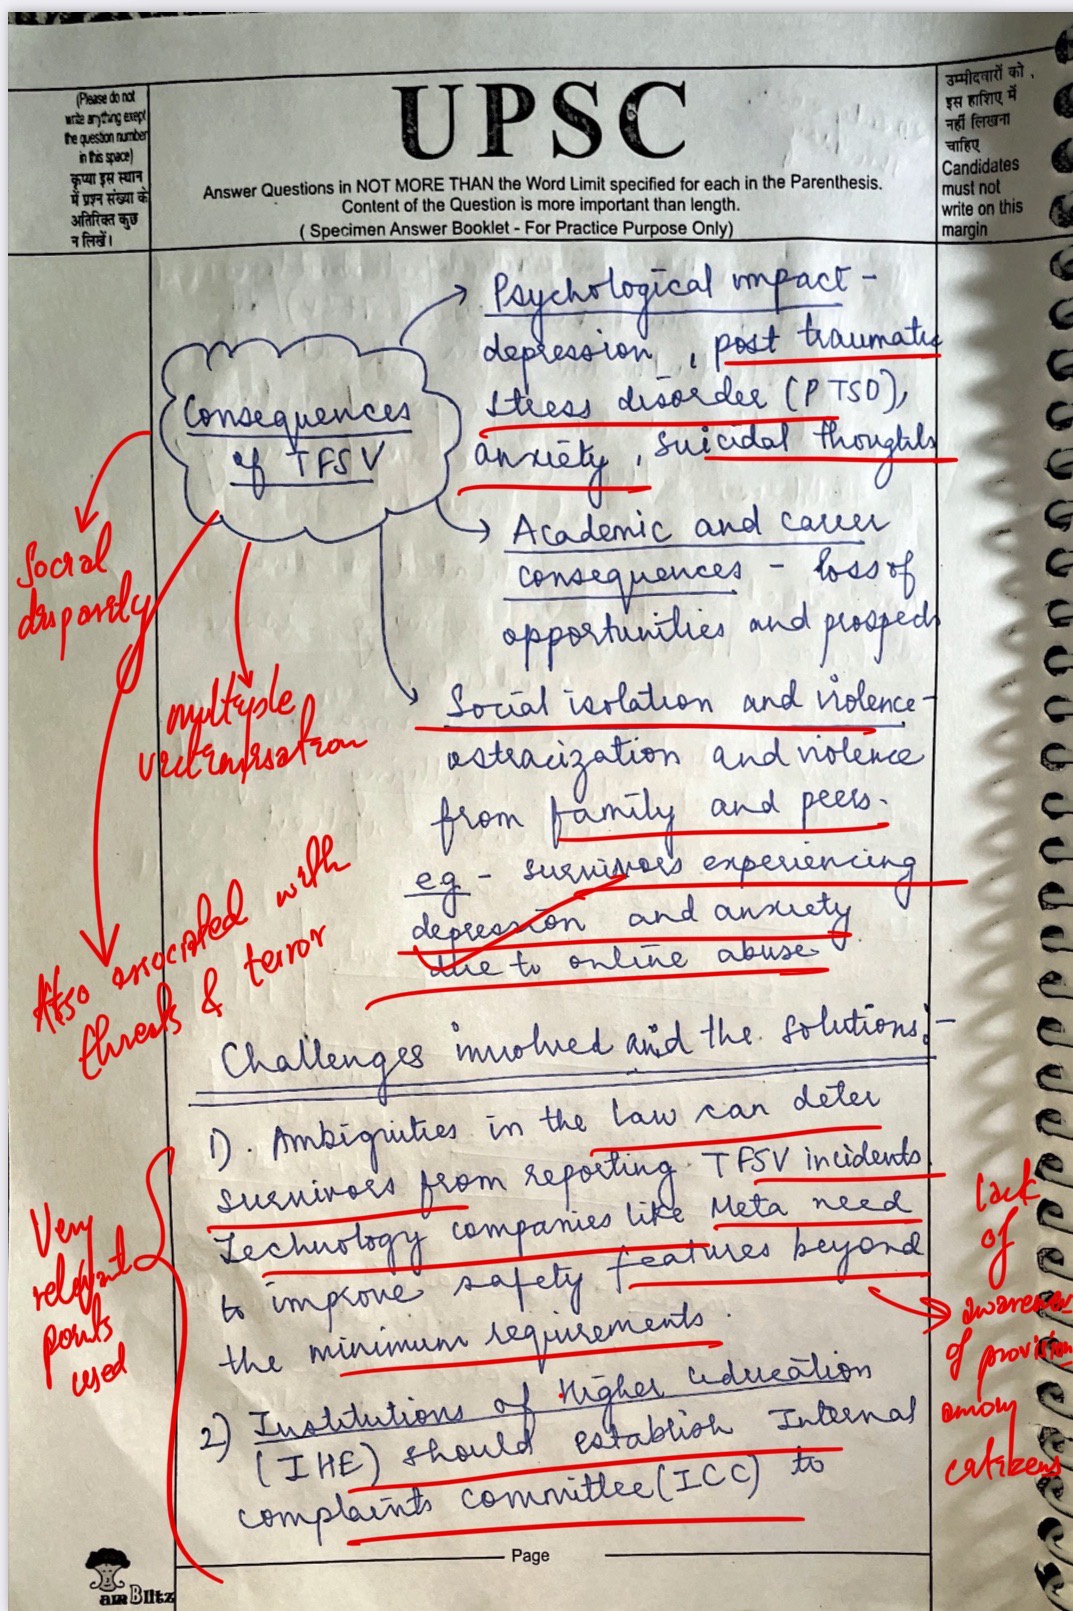 (Please do not
write anything exept
the question number
in this space)
कृप्या इस स्थान
में प्रश्न संख्या के
अतिरिक्त कुछ
न लिखें।
UPSC
Answer Questions in NOT MORE THAN the Word Limit specified for each in the Parenthesis.
Content of the Question is more important than length.
( Specimen Answer Booklet - For Practice Purpose Only)
उम्मीदवारों को
इस हाशिए में
नहीं लिखना
चाहिए
Candidates
must not
write on this
margin
Consequences
of TFSV
Psychological impact -
depression, post traumatic
stress disorder (PTSD),
anxiety, suicidal thoughts
Academic and career
consequences - loss of
opportunities and prospects
Social isolation and violence -
ostracization and violence
from family and peers.
eg - survivors experiencing
depression and anxiety
due to online abuse
Social
disparity
multiple
victimisation
Also associated with
threats & terror
Challenges involved and the solutions:-
1). Ambiguities in the law can deter
survivors from reporting TFSV incidents
Technology companies like Meta need
to improve safety features beyond
the minimum requirements.
2) Institutions of Higher education
(IHE) should establish Internal
complaints committee (ICC) to
Very
relevant
points
used
lack
of
awareness
of provision
among
citizens
Page
amBlitz